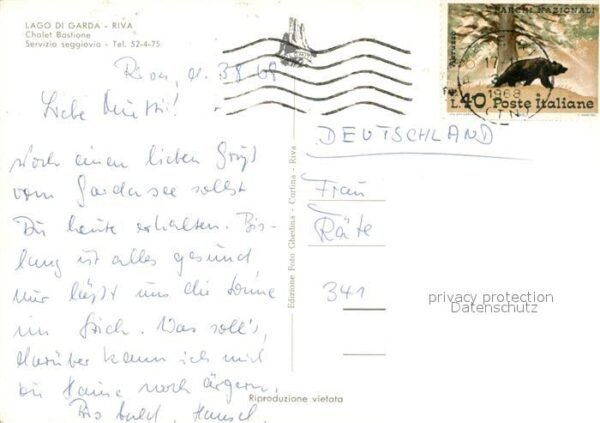 LAGO DI GARDA - RIVA
Chalet Bastione
Servizio seggiovia - Tel. 52-4-75
Riva, d. 3.8.68
Liebe Mutti!
Noch einen lieben Gruß
vom Gardasee sollst
Du heute erhalten. Bis-
lang ist alles gesund
nur läßt uns die Sonne
im Stich. Was soll's,
darüber kann ich mich
zu Hause noch ärgern.
Bis bald. Hansel.
Edizione Foto Ghedina - Cortina - Riva
Riproduzione vietata
PARCHI NAZIONALI
Abruzzo
L.40 Poste Italiane
17
1968
(TN)
DEUTSCHLAND
Frau
Käte
341
privacy protection
Datenschutz